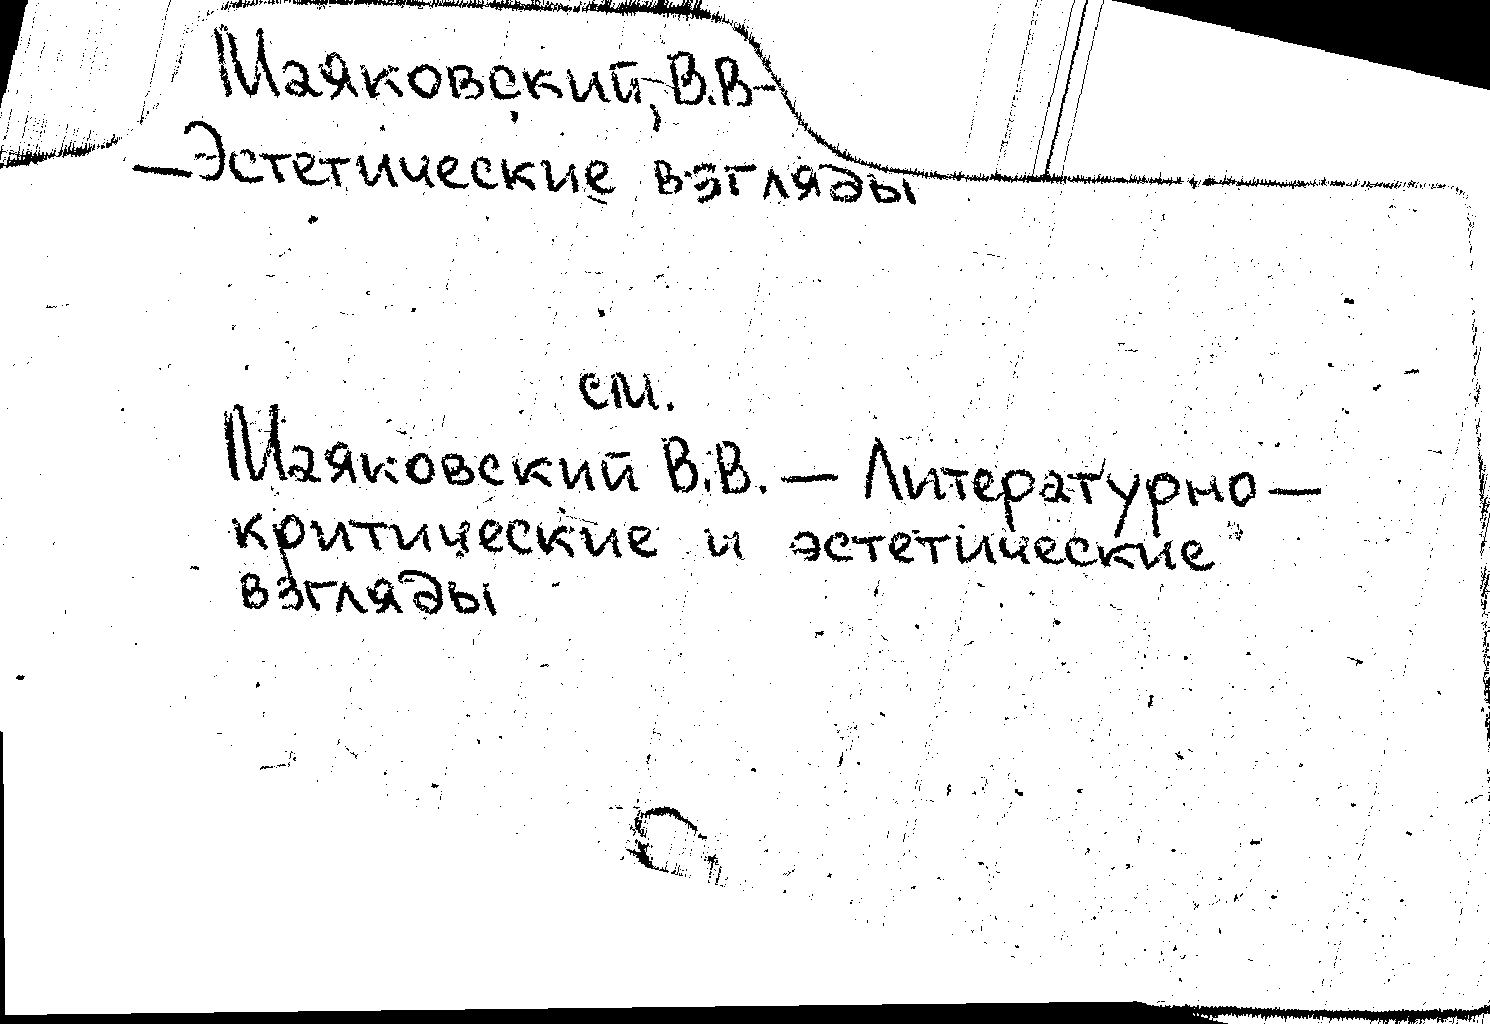 Маяковский, В.В-
—Эстетические взгляды
см.
Маяковский В.В. — Литературно—
критические и эстетические
взгляды